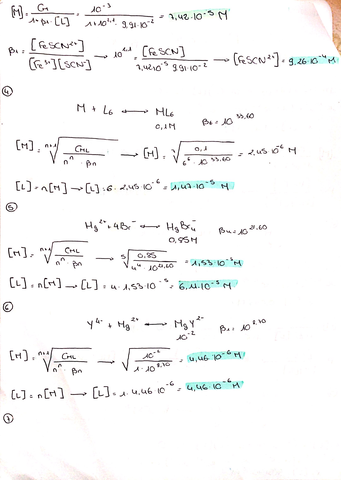 [M] = CM / 1+β1·[L] = 10⁻³ / 1+10²·¹·9.91·10⁻² = 7,42·10⁻⁵ M
β1 = [FeSCN²⁺] / [Fe³⁺][SCN⁻] → 10²·¹ = [FeSCN] / 7,42·10⁻⁵ 9.91·10⁻² → [FeSCN²⁺] = 9,26·10⁻⁴ M
④
M + L6 ⟷ ML6 β6 = 10³³·⁶⁰
0,1M
[M] = ⁿ⁺¹√(CML / nⁿ·βn) → [M] = ⁷√(0,1 / 6⁶·10³³·⁶⁰) = 2,45·10⁻⁶ M
[L] = n[M] → [L] = 6·2,45·10⁻⁶ = 1,47·10⁻⁵ M
⑤
Hg²⁺ + 4Br⁻ ⟷ HgBr4⁻ β4 = 10²¹·⁶⁰
0,85M
[M] = ⁿ⁺¹√(CML / nⁿ·βn) → ⁵√(0,85 / 4⁴·10²¹·⁶⁰) = 1,53·10⁻⁵ M
[L] = n[M] → [L] = 4·1,53·10⁻⁵ = 6,11·10⁻⁵ M
⑥
Y⁴⁻ + Mg²⁺ ⟷ MgY²⁻ β1 = 10⁸·⁷⁰
10⁻²
[M] = ⁿ⁺¹√(CML / nⁿ·βn) → √(10⁻² / 1·10⁸·⁷⁰) = 4,46·10⁻⁶ M
[L] = n[M] → [L] = 1·4,46·10⁻⁶ = 4,46·10⁻⁶ M
⑦